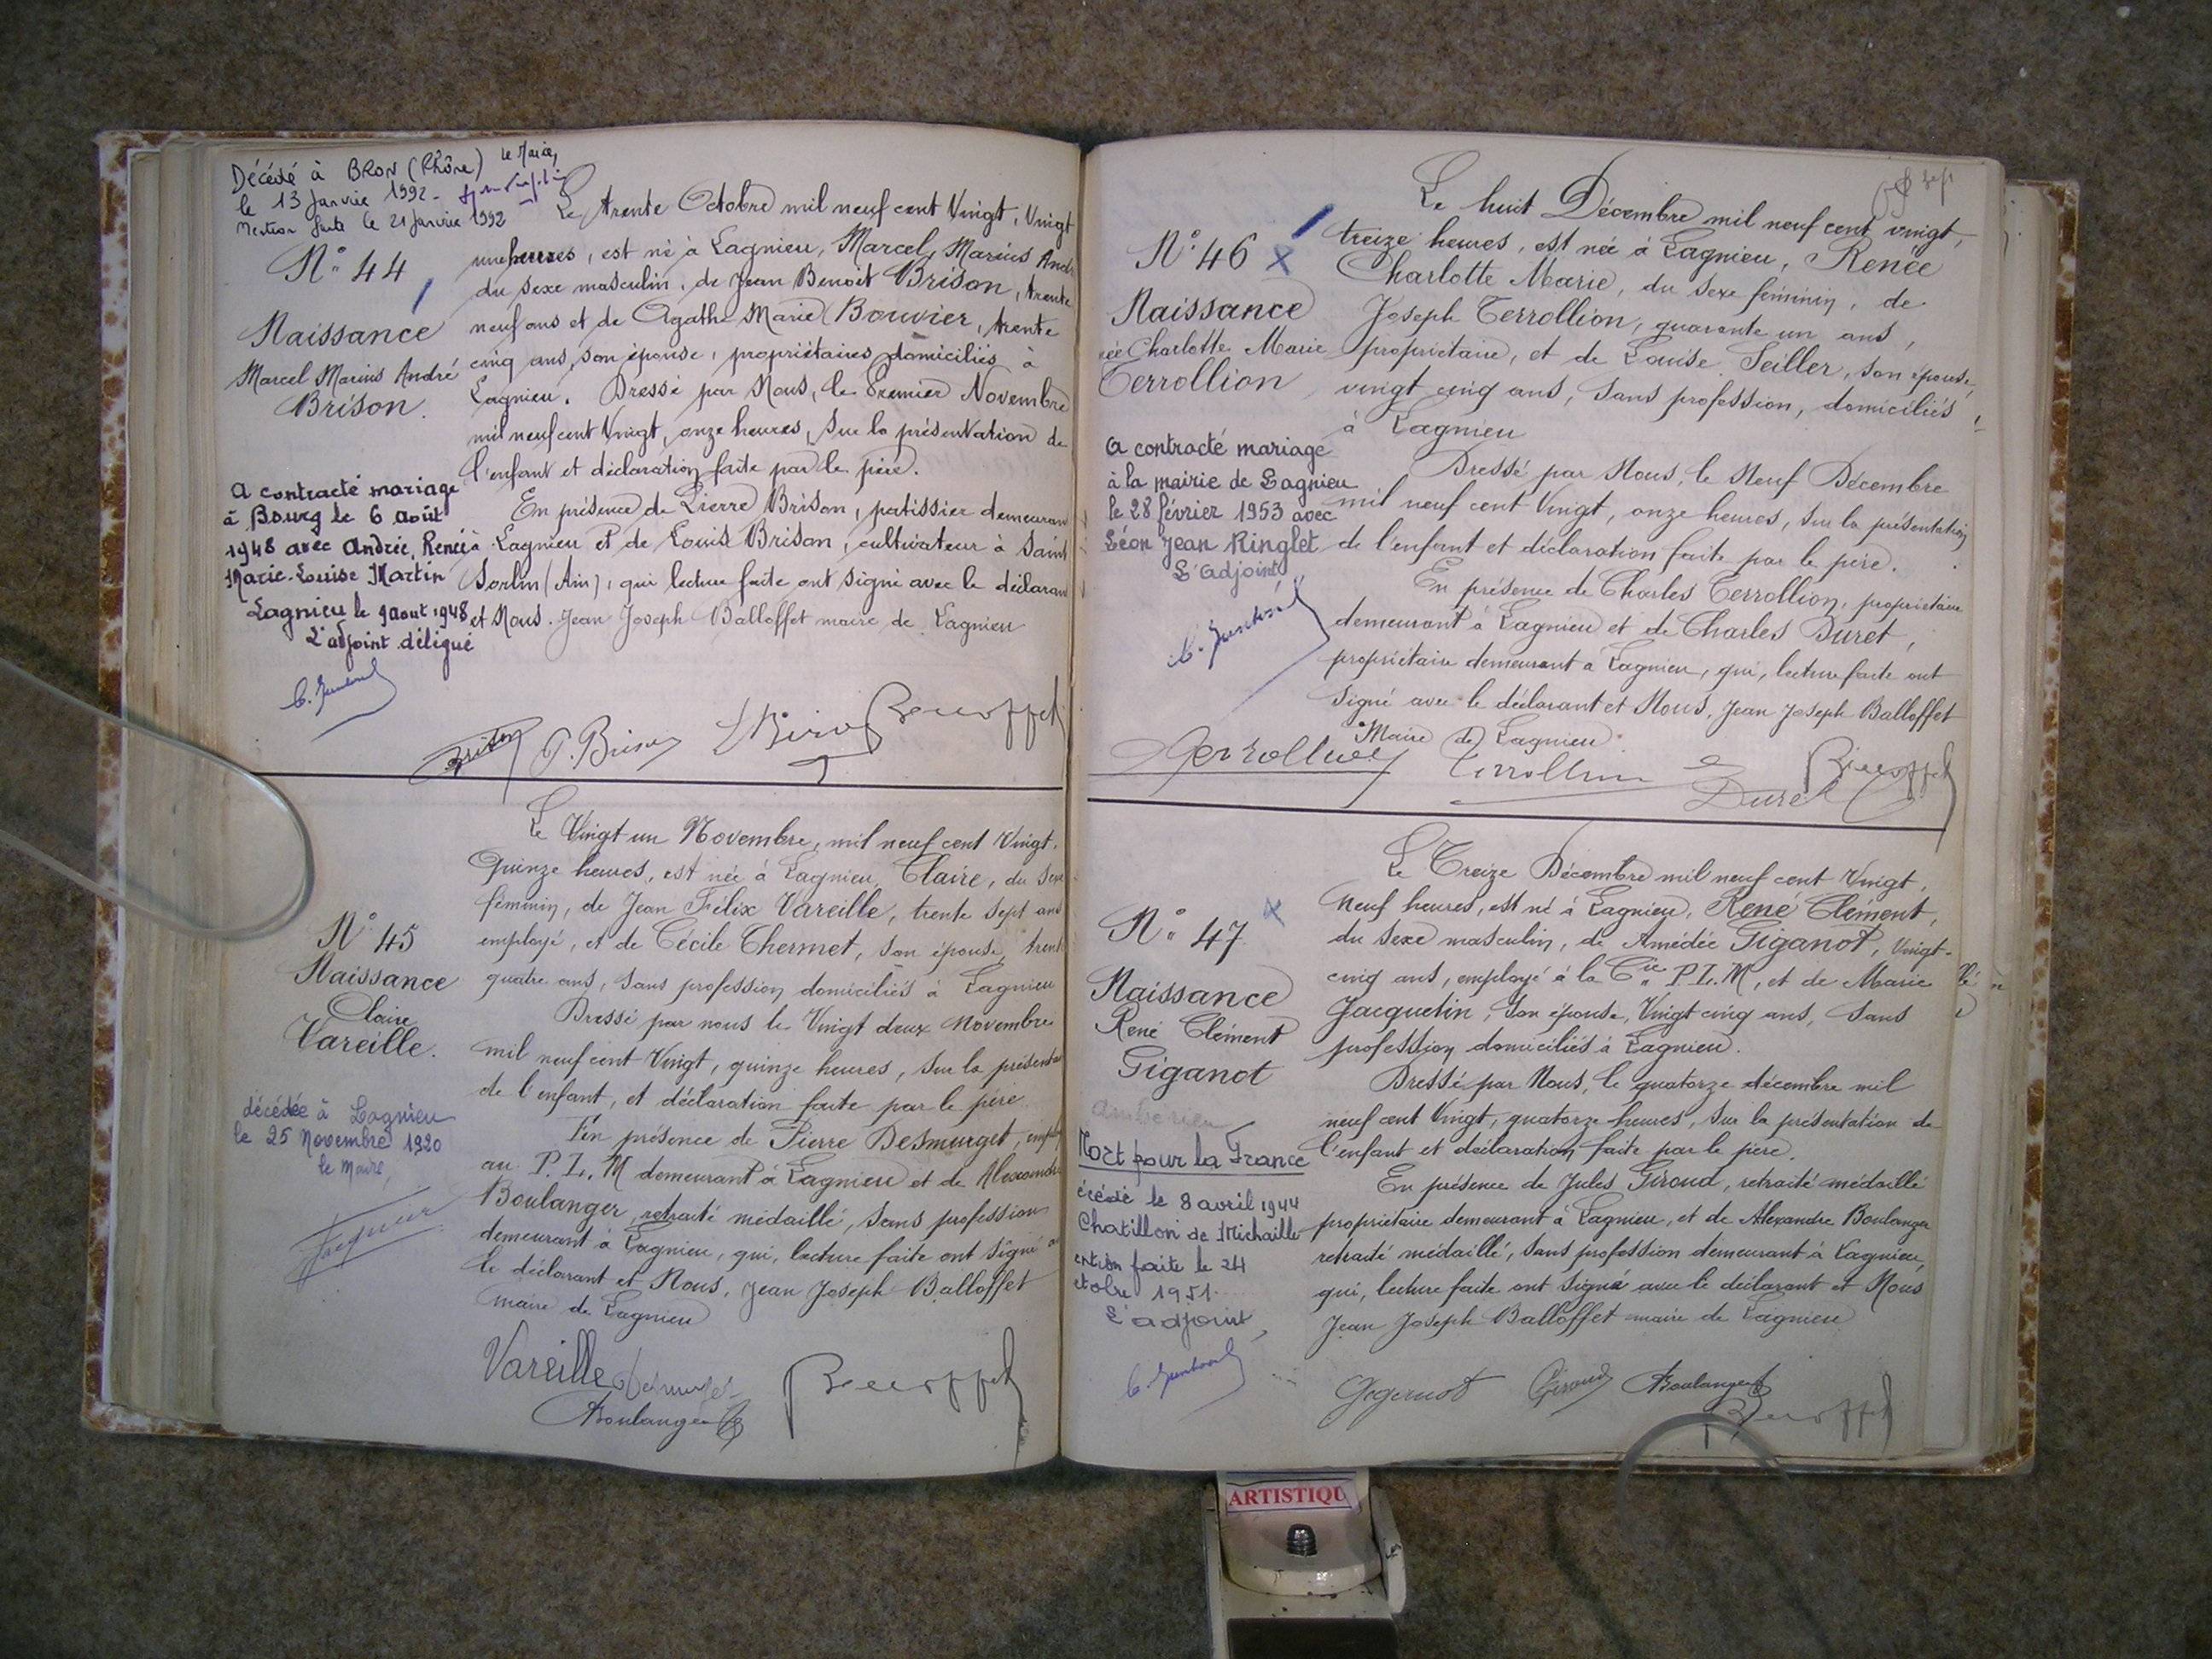 Décédé à BRON (Rhône) Le Maire,
le 13 Janvier 1992 -
Mention faite le 21 Janvier 1992
N° 44
Naissance
Marcel Marius André
Brison.
A contracté mariage
à Bourg le 6 août
1948 avec Andrée, Renée
Marie-Louise Martin
Lagnieu le 9 aout 1948
L'adjoint délégué
Le trente Octobre mil neuf cent Vingt, Vingt
une heures, est né à Lagnieu, Marcel, Marius And
du sexe masculin, de Jean Benoît Brison, trente
neuf ans et de Agathe Marie Bouvier, trente
cinq ans, son épouse, propriétaires domiciliés à
Lagnieu. Dressé par Nous, le Premier Novembre
mil neuf cent Vingt, onze heures, sur la présentation de
l'enfant et déclaration faite par le père.
En présence de Pierre Brison, patissier demeuran
à Lagnieu et de Louis Brison, cultivateur à Saint
Sorlin (Ain), qui lecture faite ont signé avec le déclaran
et Nous. Jean Joseph Balloffet maire de Lagnieu
Brison P. Brison
N° 45
Naissance
Claire
Vareille.
décédée à Lagnieu
le 25 Novembre 1920
le Maire,
Le Vingt un Novembre, mil neuf cent Vingt,
Quinze heures, est née à Lagnieu, Claire, du sexe
féminin, de Jean Félix Vareille, trente sept ans
employé, et de Cécile Thermet, son épouse, trent
quatre ans, sans profession domiciliés à Lagnieu
Dressé par nous le Vingt deux Novembre
mil neuf cent Vingt, quinze heures, sur la présenta
de l'enfant, et déclaration faite par le père
En présence de Pierre Desmurget, emplo
au P. L. M demeurant à Lagnieu et de Alexandre
Boulanger, retraité médaillé, sans profession
demeurant à Lagnieu, qui, lecture faite ont signé a
le déclarant et Nous, Jean Joseph Balloffet
maire de Lagnieu
Vareille Desmurget
Boulanger
N° 46
Naissance
ée Charlotte Marie
Terrollion
A contracté mariage
à la mairie de Lagnieu
le 28 février 1953 avec
Léon Jean Ringlet
L'adjoint
Le huit Décembre mil neuf cent vingt,
treize heures, est née à Lagnieu, Renée
Charlotte Marie, du sexe féminin, de
Joseph Terrollion, quarante un ans,
propriétaire, et de Louise Seiller, son épouse,
vingt cinq ans, sans profession, domiciliés
à Lagnieu
Dressé par Nous, le Neuf Décembre
mil neuf cent Vingt, onze heures, sur la présentation
de l'enfant et déclaration faite par le père.
En présence de Charles Terrollion, propriétaire
demeurant à Lagnieu et de Charles Duret,
propriétaire demeurant à Lagnieu, qui, lecture faite ont
signé avec le déclarant et Nous, Jean Joseph Balloffet
Maire de Lagnieu
Terrollion
Duret
N° 47
Naissance
René Clément
Giganot
Ambérieu
Mort pour la France
écédé le 8 avril 1944
Chatillon de Michaille
ention faite le 24
ctobre 1951
L'adjoint,
Le Treize Décembre mil neuf cent Vingt,
Neuf heures, est né à Lagnieu, René Clément,
du sexe masculin, de Amédée Giganot, Vingt-
cinq ans, employé à la Cie P.L.M, et de Marie
Jacquetin, son épouse, Vingt cinq ans, sans
profession domiciliés à Lagnieu.
Dressé par Nous, le quatorze décembre mil
neuf cent Vingt, quatorze heures, sur la présentation de
l'enfant et déclaration faite par le père.
En présence de Jules Giroud, retraité médaillé
propriétaire demeurant à Lagnieu, et de Alexandre Boulanger
retraité médaillé, sans profession demeurant à Lagnieu,
qui, lecture faite ont signé avec le déclarant et Nous
Jean Joseph Balloffet maire de Lagnieu
Giroud Boulanger
ARTISTIQU